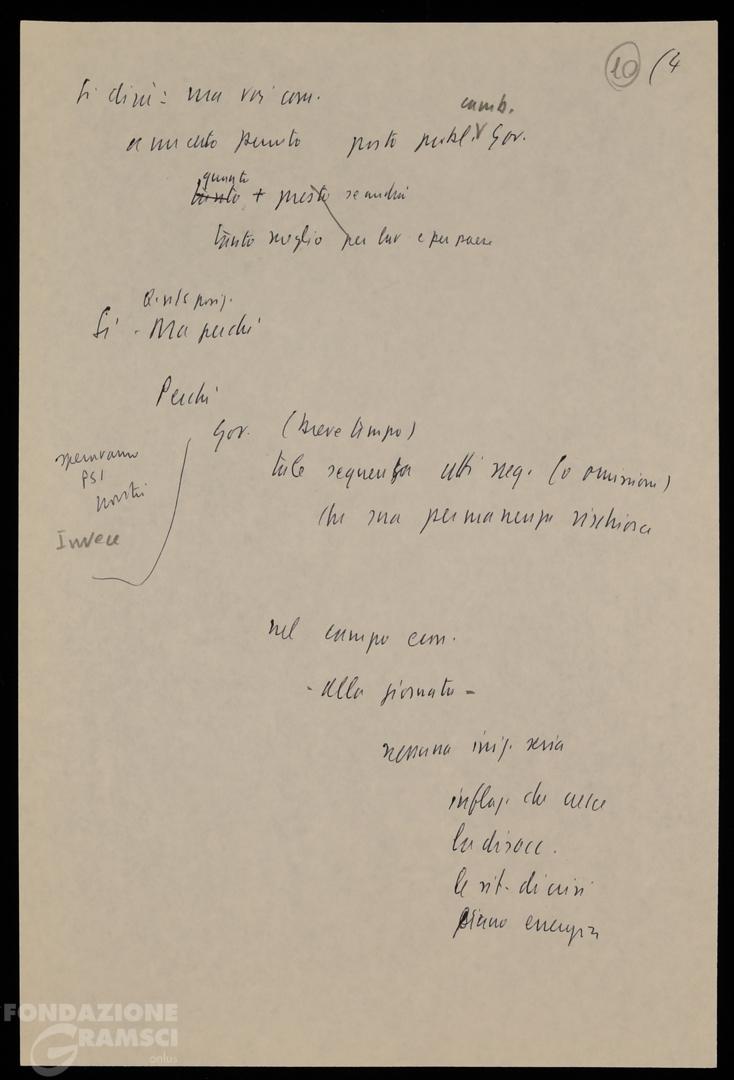 10 (4
Si dirà: ma voi com.
a un certo punto posto probl. camb. Gov.
tanto quanto + presto se andrà
tanto meglio per lav e per paese
Questa posiz.
Sì - Ma perché
Perché
Gov. (breve tempo)
speravamo
PSI
nostri
Invece
tale sequenza atti neg. (o omissioni)
che sua permanenza rischiosa
nel campo econ.
- alla giornata -
nessuna iniz. seria
inflaz. che cresce
la disocc.
le sit. di crisi
piano energia
FONDAZIONE
GRAMSCI
onlus